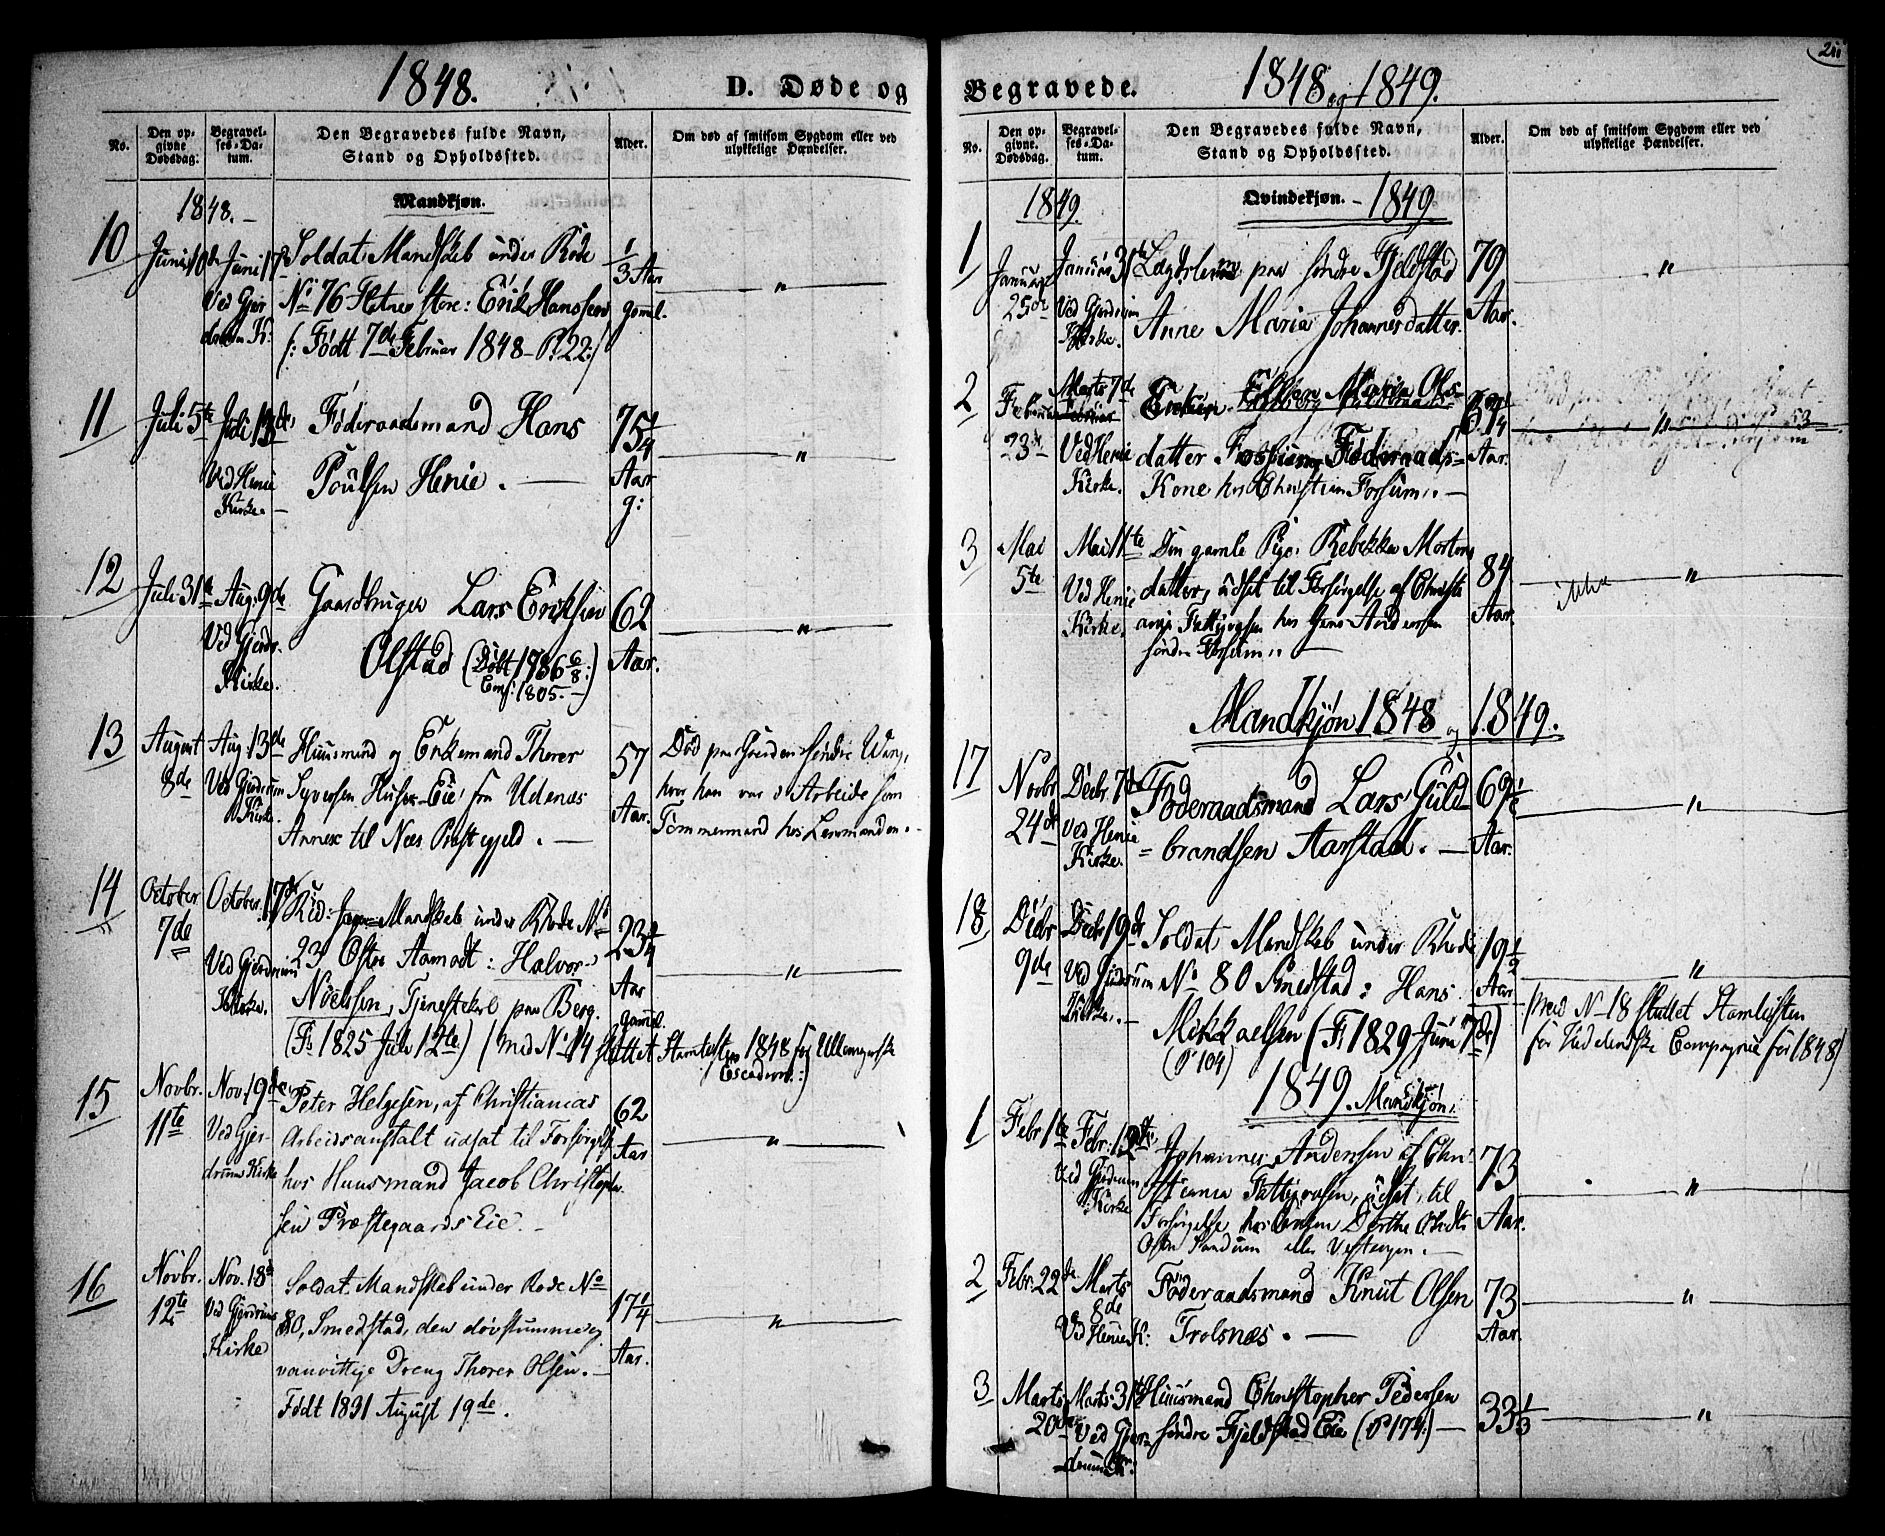 1848.
D. Døde og
No.
Den op-
givne
Dødsdag:
Begravel-
ses-Da-
tum.
Den Begravedes fulde Navn,
Stand og Opholdssted.
Alder.
Om død af smitsom Sygdom eller ved
ulykkelige Hændelser.
1848.
Mandkjøn.
10
Juni 10de
Juni 17de
Ved Gjer
drum K:
Soldat Mandskab under Rode
No 76 Fletnes store: Erik Hanssen
(: Født 7de Februar 1848 - P. 22:)
1/3 Aar
gaml.
"
11
Juli 5te
Juli 13de
Ved Henie
Kirke.
Föderaadsmand Hans
Poulsen Henie.
75 1/4
Aar
g:
"
12
Juli 31te
Aug: 9de
Ved Gjerdr.
Kirke.
Gaardbruger Lars Eriksen
Olstad (Døbt 1786 6/8:)
Conf: 1805.
62
Aar.
"
13
August
8de
Aug: 13de
Ved Gjerdrum
Kirke.
Huusmand og Enkemand Thorer
Syversen Eie fra Udenæs
Annex til Næs Præstegjeld.
57
Aar.
Død paa Gaarden søndre
hvor han var i Arbeide som
Tømmermand hos Lensmanden.
14
October
7de
October 17de
Ved Gjerdrum
Kirke.
Rid: Mandskab under Rode No
23 Østre Aamodt: Halvor
Nielssen, Tjenestekarl paa Berg.
(F: 1825 Juli 12te) (med No 14 sluttet Stamlisten 1848 for
Escadron:)
23 1/4
Aar
gammel.
"
15
Novbr.
11te
Nov: 19de
Ved Gjer-
drum Kirke
Peter Helgesen, af Christianias
Arbeidsanstalt udsat til Forsørgelse
hos Huusmand Jacob Christophe
sen Præstegaards Eie.
62
Aar
"
16
Novbr.
12te
Nov. 18de
Ved Gjerdrums
Kirke
Soldat Mandskab under Rode No
80, Smedstad, den døvstumme og
vanvittige Dreng Thorer Olsen.
Født 1831 August 19de.
17 1/4
Aar.
"
Begravede.
1848 og 1849.
No.
Den op-
givne.
Dødsdag.
Begravel-
ses-Da-
tum.
Den Begravedes fulde Navn,
Stand og Opholdssted.
Alder.
Om død af smitsom Sygdom eller ved
ulykkelige Hændelser.
1849.
Qvindekjøn. - 1849
1
Januar
25de
Januar 31te
Ved Gjerdrum
Kirke.
paa søndre Fjeldstad
Anne Maria Johannesdatter.
79
Aar.
"
2
Februar
23de
Marts 7de
Ved Henie
Kirke.
Maria Ols-
datter Fossum Föderaads-
Kone hos Christian Forsum.
Aar.
"
3
Mai
5te
Mai 11te
Ved Henie
Kirke.
Den gamle Pige Rebekka Mortens
datter, udsat til Forsørgelse af Christi
ania Fattigvæsen hos Hans Andersen
søndre Fossum.
84
Aar.
"
Mandkjøn 1848 og 1849.
17
Novbr
24de
Decbr. 7de
Ved Henie
Kirke.
Föderaadsmand Lars Guld-
brandsen Aarstad.
69 1/2
Aar.
"
18
Decbr
9de
Decbr 19de
Ved Gjerdrum
Kirke.
Soldat Mandskab under Rode
No 80 Smedstad: Hans
Mikkaelsen (F: 1829 Juni 7de)
(P 104)
19 1/2
Aar
"
(med No 18 sluttet Stamlisten
for Compagnie for 1848)
1849. Mandkjøn.
1
Febr 1te
Febr: 12te
Ved Gjerdrum
Kirke
Johannes Andersen af Chri
stiania Fattigvæsen, udsat til
Forsørgelse hos Enken Dorthe
Østre eller Vestengen.
73
Aar.
"
2
Febr. 22de
Marts
8de
Ved Henie K:
Föderaadsmand Knut Olsen
Trolsnæs.
73
Aar.
"
3
Marts
20de
Marts 31te
Ved Gjer-
drum K:
Huusmand Christopher Pedersen
søndre Fjeldstad Eie (P 174:)
33 1/3
"